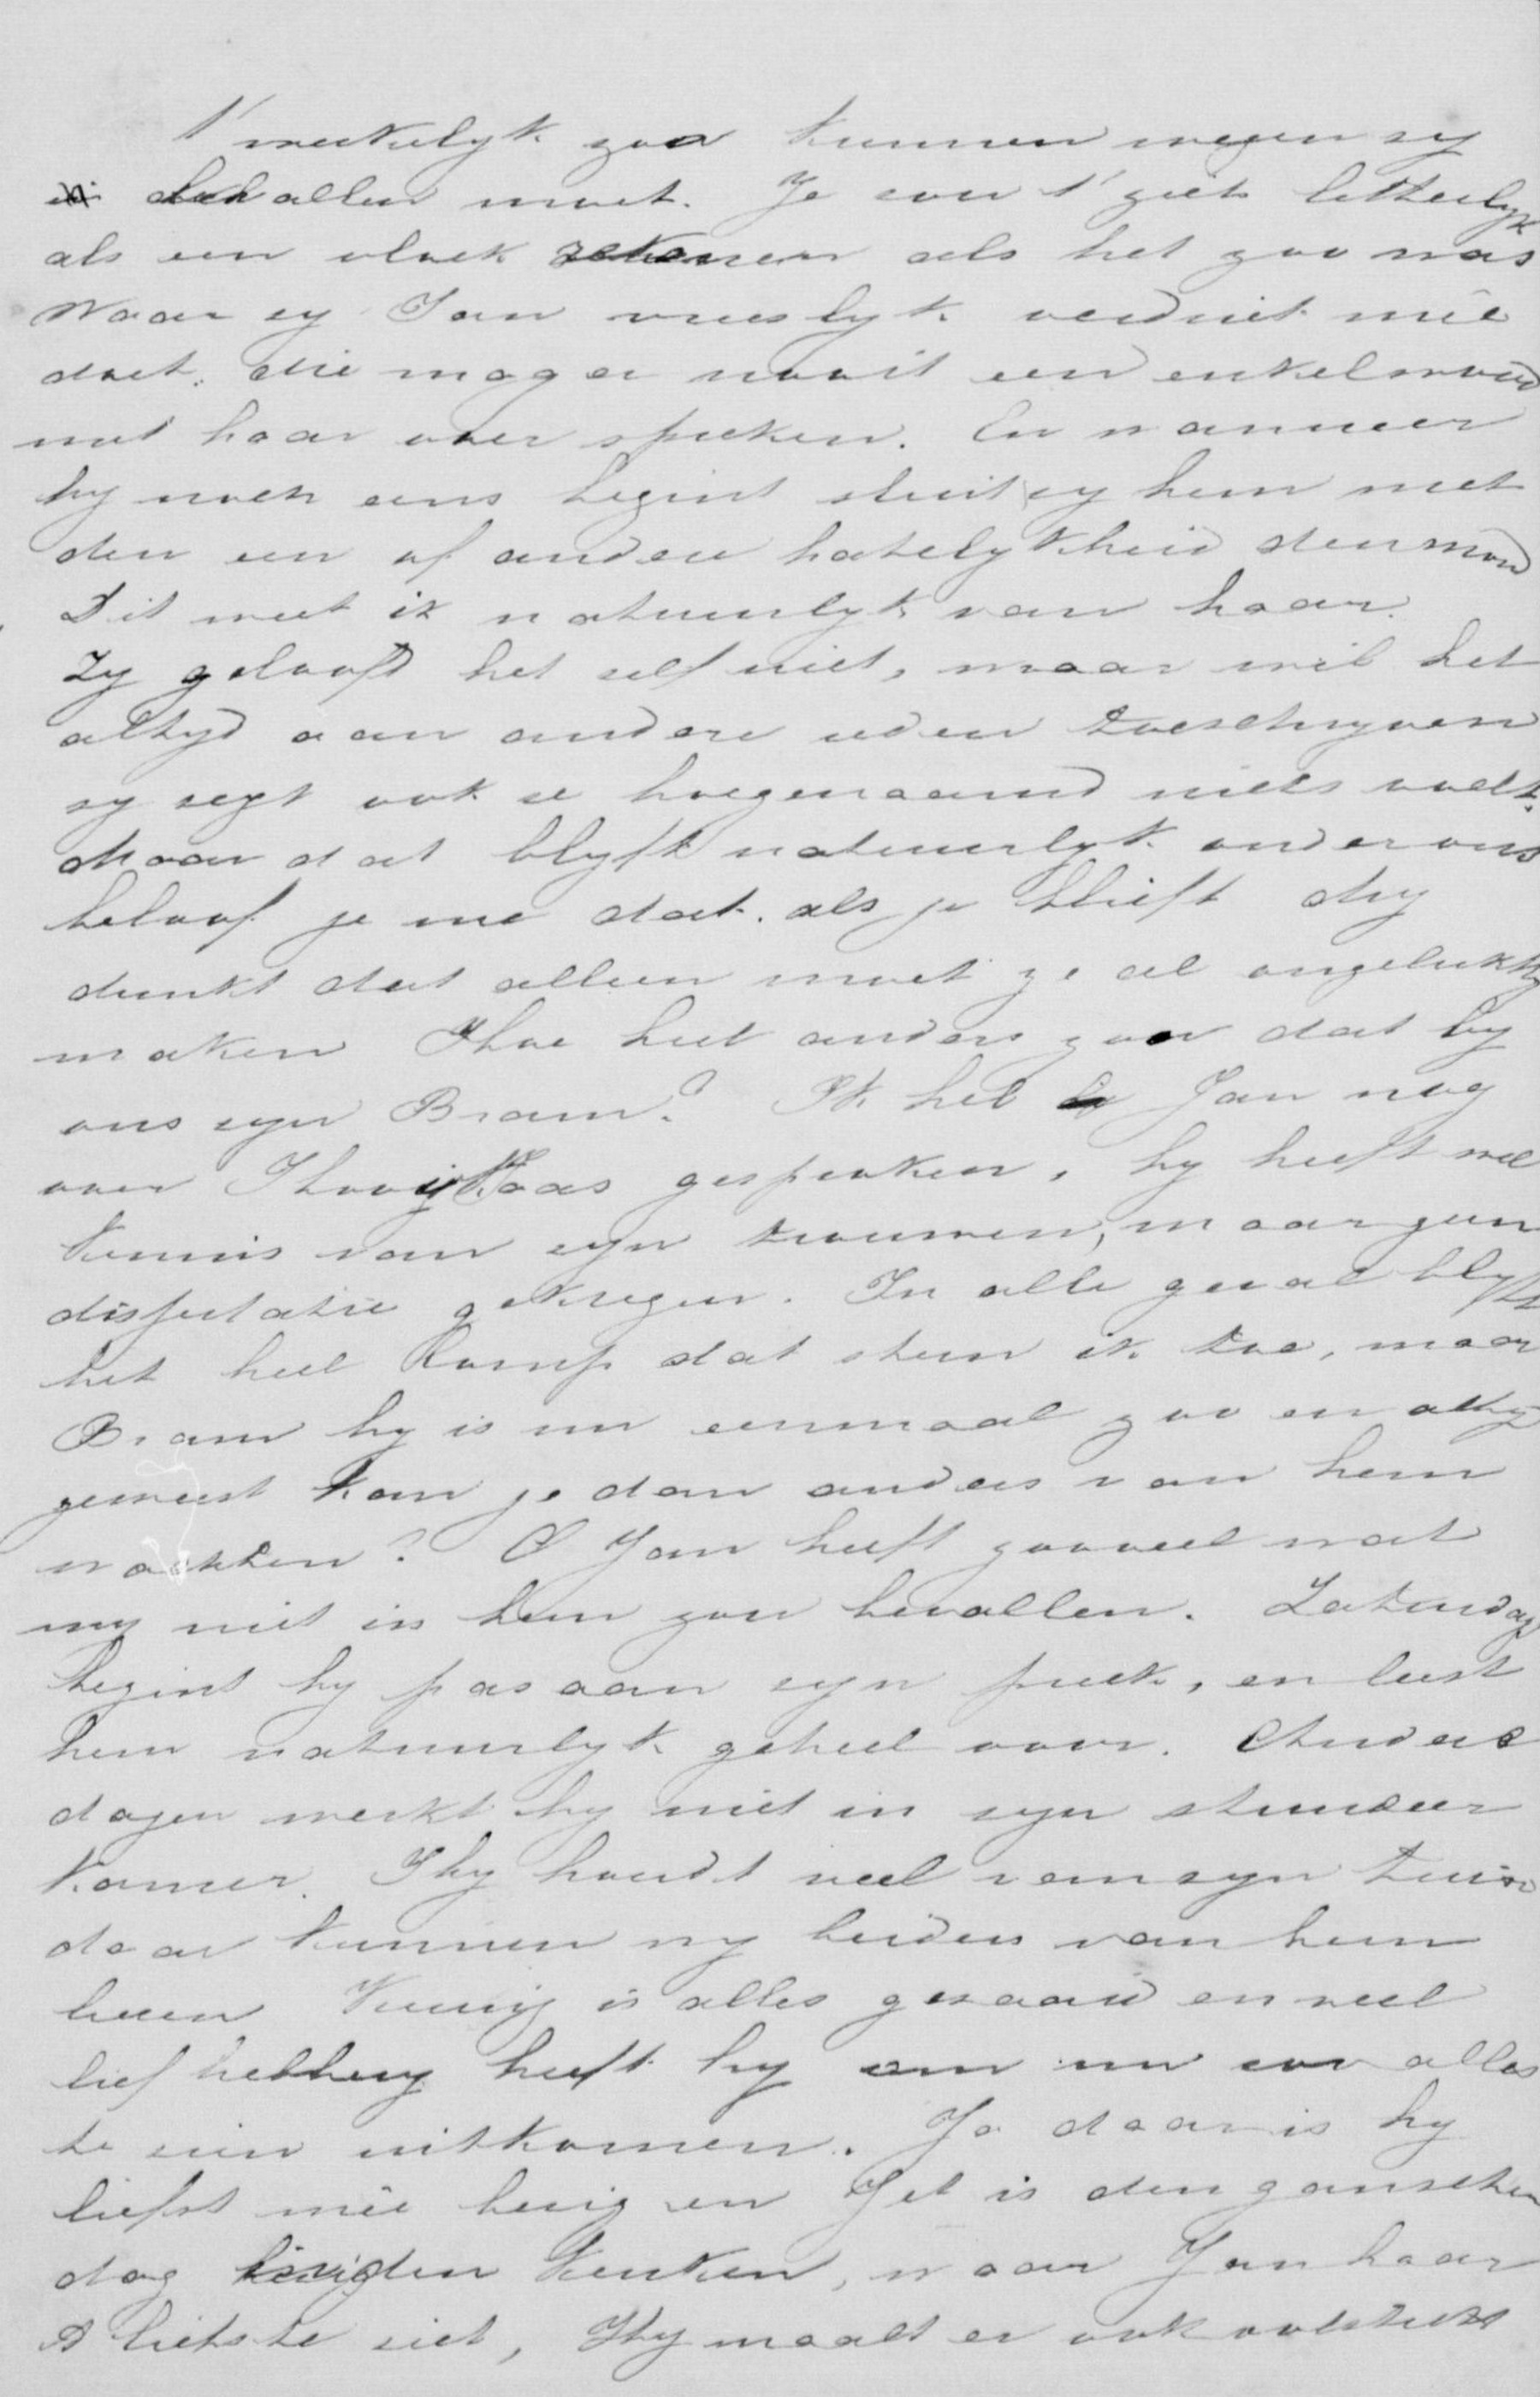 't werkelyk zoo kunnen wezen zy
dah alles moet. Je zou 't ziets letterlyk
als een vloek rekenen als het zoo was
Waar zy Jan vreeslyk verdriet meê
doet. die mag er nooit een enkel woord
met haar over spreken. En wanneer
hy noch eens begint sluit zy hem met
den een of andere hatelykheid den mond
Dit weet ik natuurlyk van haar.
Zy gelooft het self niet, maar wil het
altyd aan andere reden toeschryven
zy zegt ook ze hoegenaamd niets voelt.
Maar dat blyft natuurlyk onder ons
beloof je me dat. als je blieft My
dunkt dat alleen moet ze al ongelukkig
maken Hoe heel anders zoo dat by
ons zyn Bram? Ik heb Jan nog
over Thooy Haas gesproken, hy heeft wel
kennis van zyn trouwen, maar geen
dispertatie gekregen. In alle geval blyft
het heel lomp dat stem ik toe, maar
Bram hy is nu eenmaal zoo en altyd
geweest kan je dan anders van hem
wachten? O Jan heeft zooveel wat
my niet in hem zou bevallen. Zaterdag
begint hy pas aan zyn preek, en leest
hem natuurlyk geheel voor. Andere
dagen werkt hy niet in zyn studeer
kamer. Hy houdt veel van zyn tuin
daar kunnen wy beiden van hem
leeren Keurig is alles gezaaid en veel
liefhebbery heeft hy om nu eer alles
te zien uitkomen. Ja daar is hy
liefst meê bezig en Jet is den ganschen
dag bezig den keuken, waar Jan haar
't liefste ziet, Hy maalt er ook volstrekt